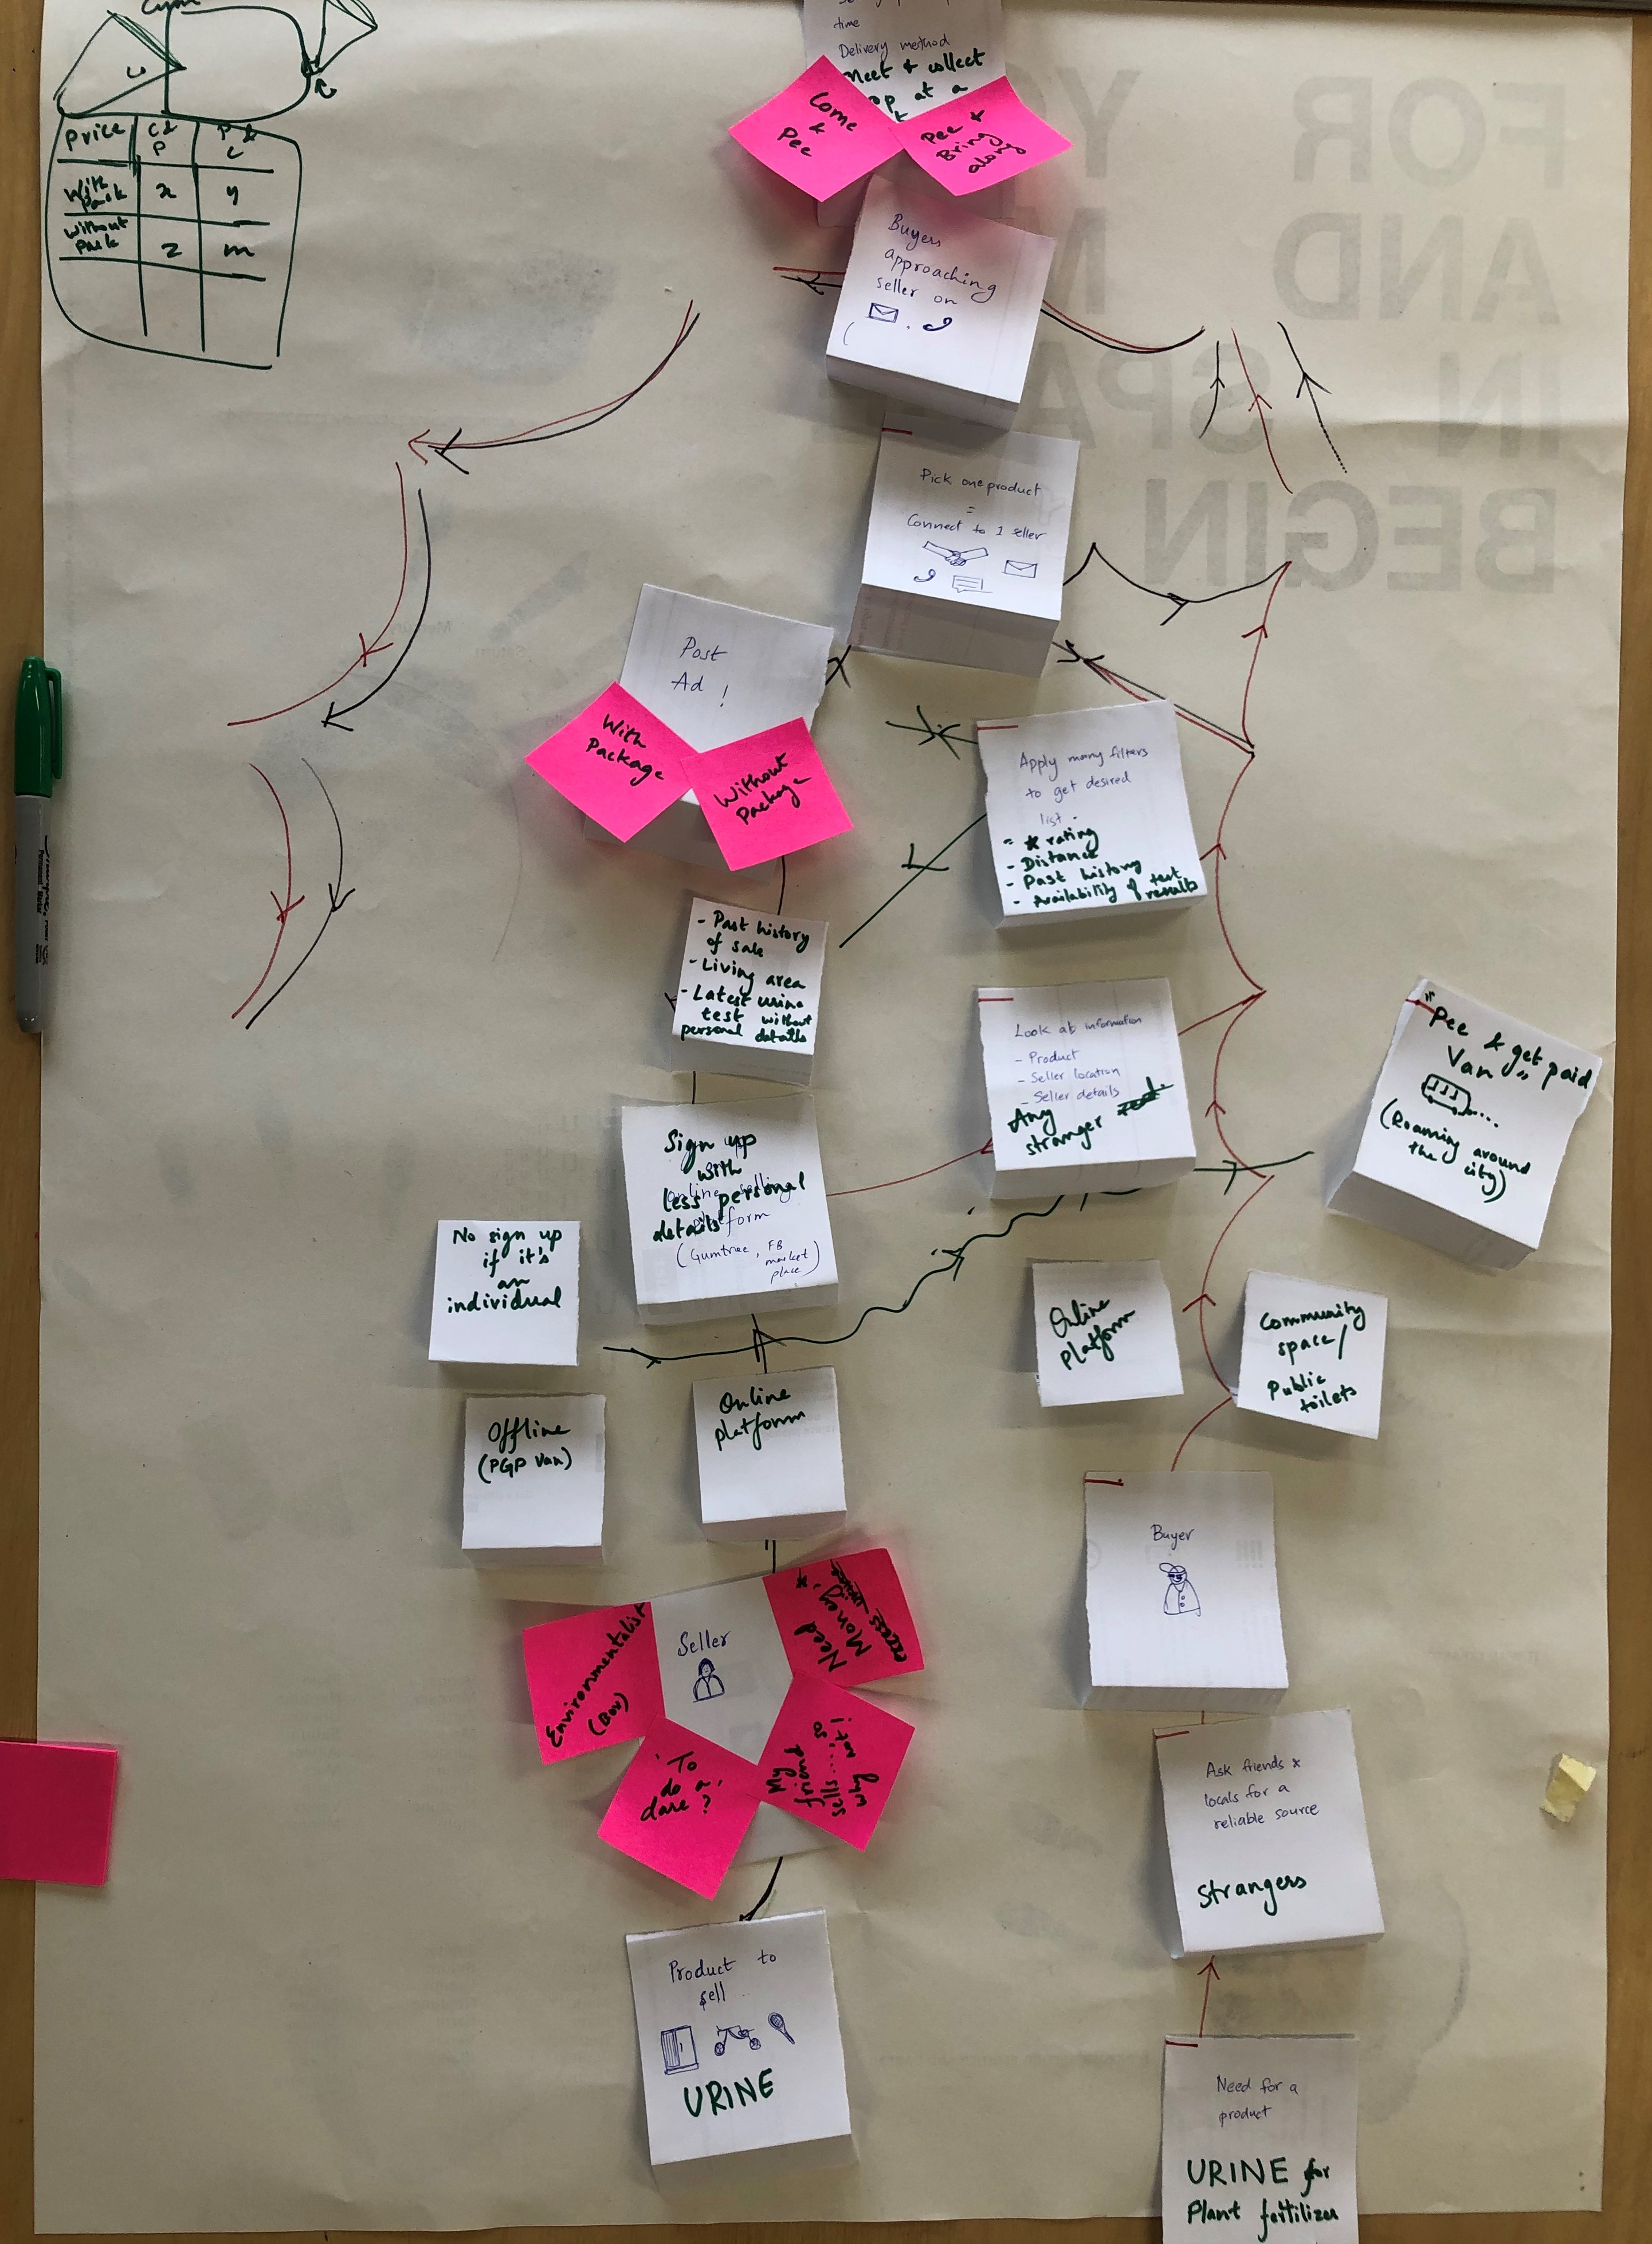 time
Delivery method
Meet & collect
at a
Come
&
Pee
Pee +
Bring
along
Price
C &
P
P &
C
With
Pack
x
y
Without
Pack
z
m
Buyers
approaching
seller on
FOR
AND
IN
BEGIN
Pick one product
=
Connect to 1 seller
Post
Ad !
With
Package
Without
Package
Apply many filters
to get desired
list.
- * rating
- Distance
- Past history
- Availability of test
results
- Past history
of sale
- Living area
- Latest urine
test without
personal details
Look at information
- Product
- Seller location
- Seller details
Any
stranger
"Pee & get paid
Van"
(Roaming around
the city)
Sign up
with
less personal
details
(Gumtree, FB
market
place)
No sign up
if it's
an
individual
Online
platform
Community
space/
Public
toilets
Offline
(PGP Van)
Online
platform
Buyer
Seller
Environmentalist
(Box)
Need
Money,
To
do a
dare?
My
friend
sells....so
why not i
Ask friends &
locals for a
reliable source
Strangers
Product to
sell
URINE
Need for a
product
URINE for
Plant fertilizer